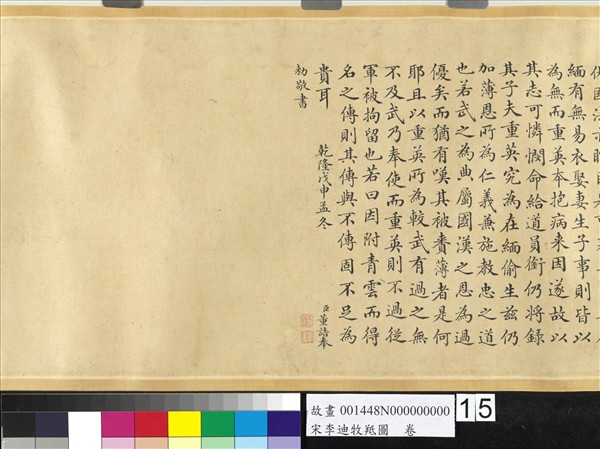 緬有無易衣娶妻生子事則皆以
為無而重英本抱病来因遂故以
其志可憐憫命給道員銜仍將錄
其子夫重英究為在緬偷生兹仍
加薄恩所為仁義兼施教忠之道
也若武之為典屬國漢之恩為過
優矣而猶有嘆其被賚薄者是何
耶且以重英所為較武有過之無
不及武乃奉使而重英則不過從
軍被拘留也若曰因附青雲而得
名之傳則其傳與不傳固不足為
貴耳
乾隆戊申孟冬
臣董誥奉
勅敬書
故畫 001448N000000000
宋李迪牧羝圖 卷
15